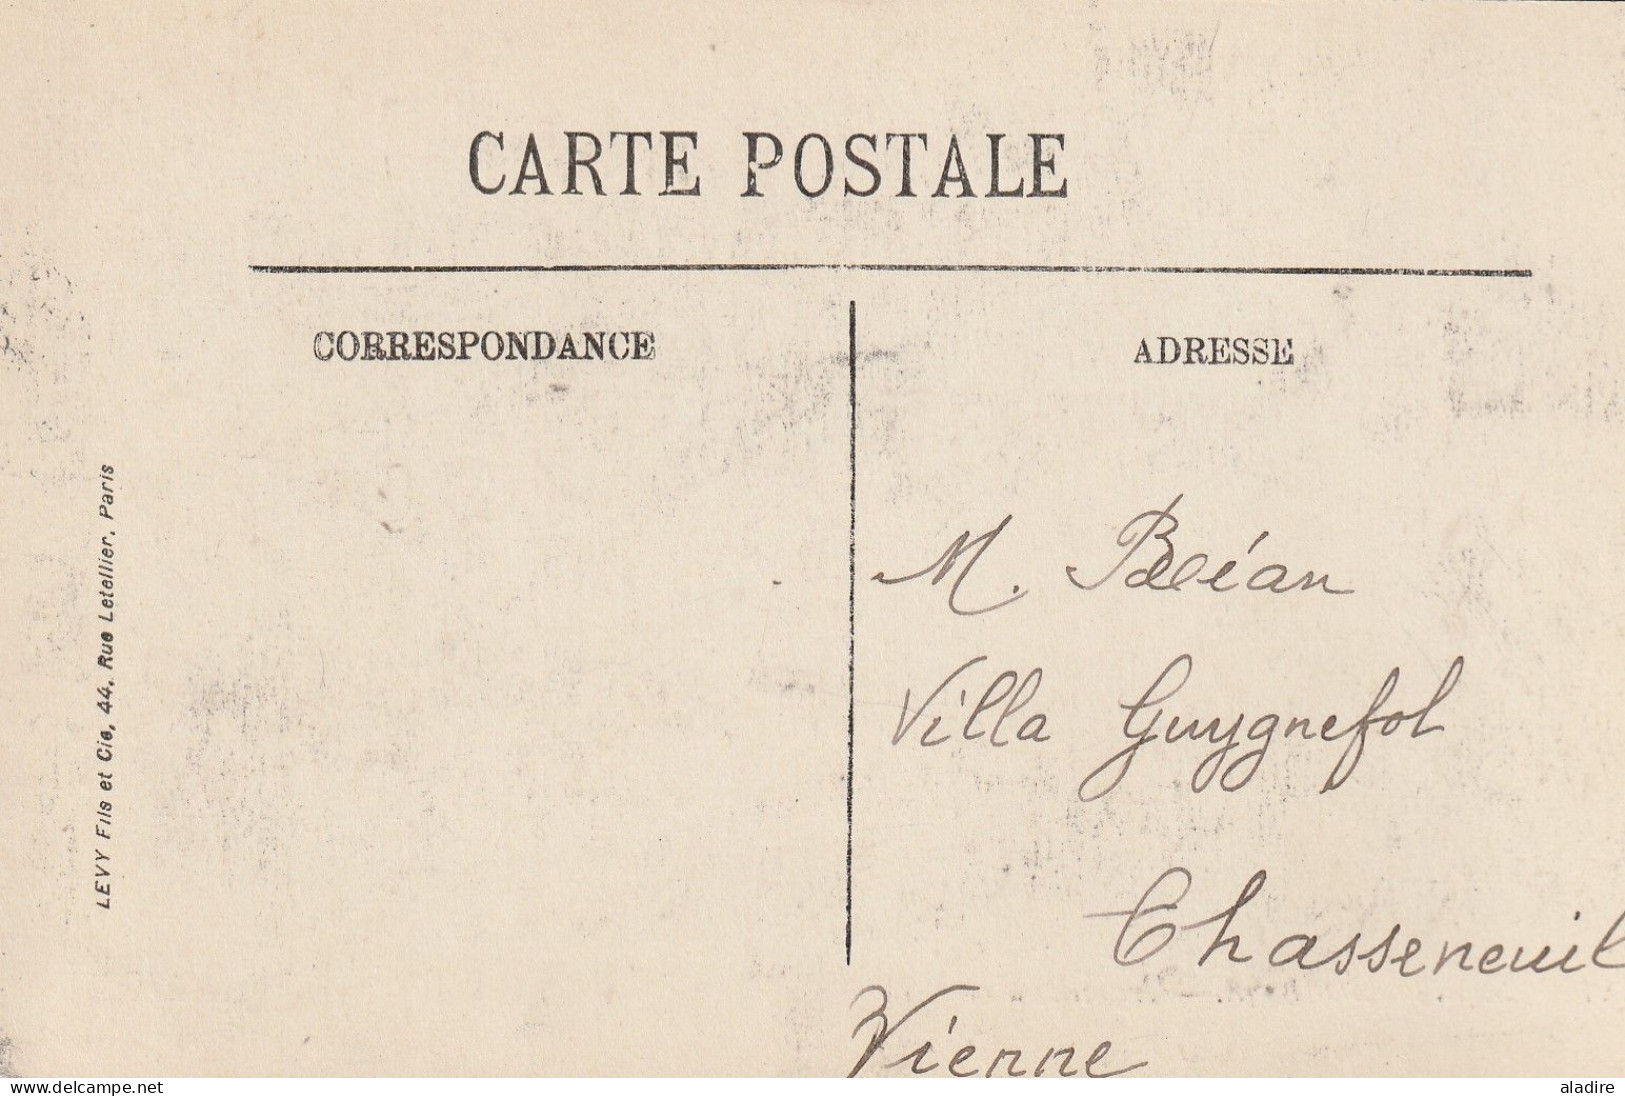 CARTE POSTALE
CORRESPONDANCE
ADRESSE
LEVY Fils et Cie, 44, Rue Letellier, Paris
M. Bléan
Villa Guygnefol
Chasseneuil
Vienne
www.delcampe.net
aladire